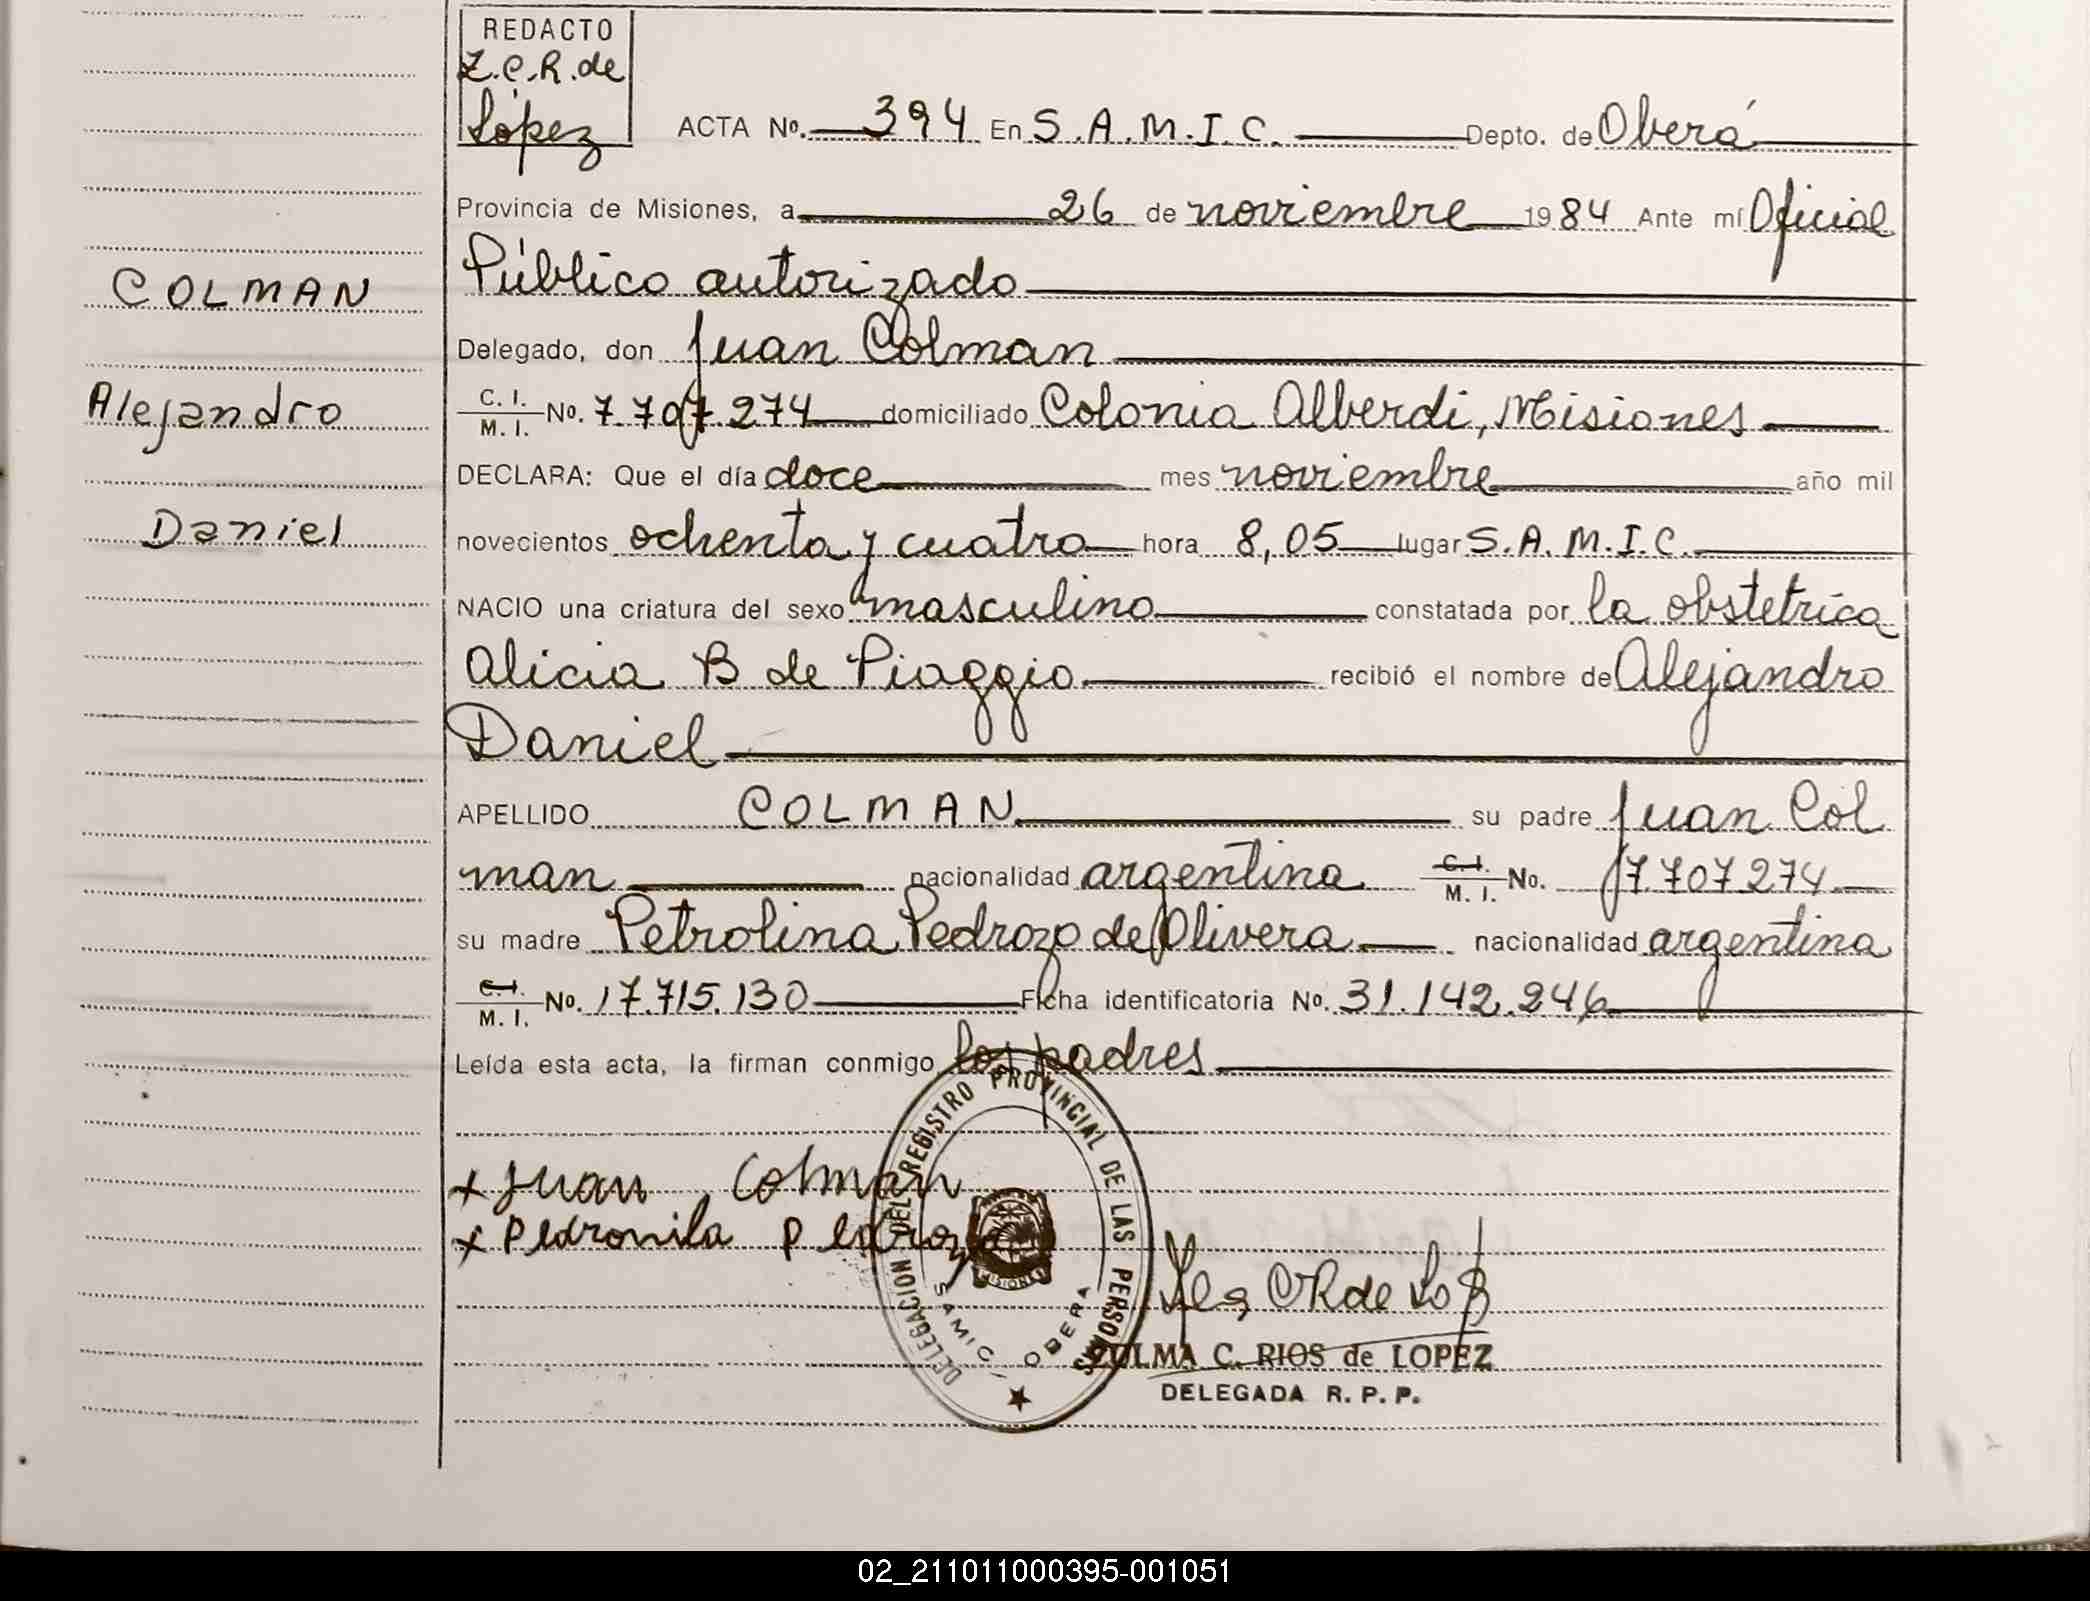 REDACTO
Z.C.R. de
López
ACTA No. 394 En S.A.M.I.C. Depto. de Oberá
Provincia de Misiones, a 26 de noviembre 1984 Ante mí Oficial
Público autorizado
COLMAN
Delegado, don Juan Colman
Alejandro
C. I. M. I. No. 7.707.274 domiciliado Colonia Alberdi, Misiones
DECLARA: Que el día doce mes noviembre año mil
Daniel
novecientos ochenta y cuatro hora 8,05 lugar S.A.M.I.C.
NACIO una criatura del sexo masculino constatada por la obstetrica
Alicia B de Piaggio recibió el nombre de Alejandro
Daniel
APELLIDO COLMAN su padre Juan Col
man nacionalidad argentina C. I. M. I. No. 7.707.274
su madre Petrolina Pedrozo de Olivera nacionalidad argentina
C. I. M. I. No. 17.715.130 Ficha identificatoria No. 31.142.246
Leída esta acta, la firman conmigo los padres
DELEGACION DEL REGISTRO PROVINCIAL DE LAS PERSONAS
x Juan Colman
x Pedronila Pedrozo
MISIONES
SAMIC - OBERA
ZULMA C. RIOS de LOPEZ
DELEGADA R. P. P.
02_211011000395-001051